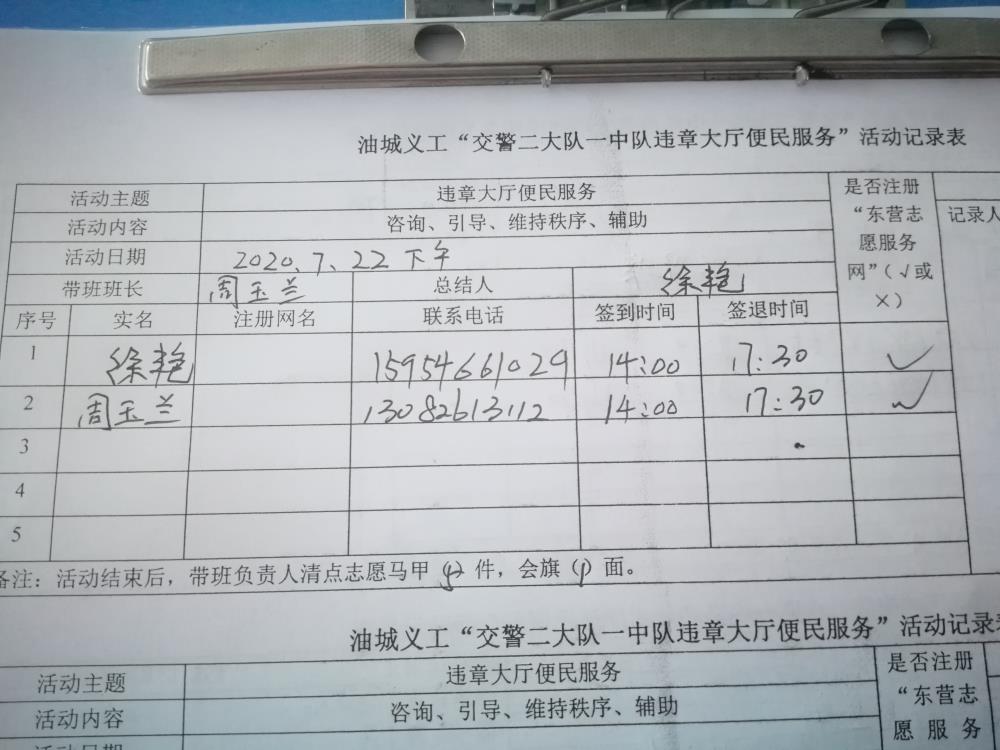 油城义工“交警二大队一中队违章大厅便民服务”活动记录表
活动主题 违章大厅便民服务 是否注册“东营志愿服务网”（√或×） 记录人
活动内容 咨询、引导、维持秩序、辅助
活动日期 2020.7.22 下午
带班班长 周玉兰 总结人 徐艳
序号 实名 注册网名 联系电话 签到时间 签退时间
1 徐艳 15954661029 14:00 17:30 √
2 周玉兰 13082613112 14:00 17:30 √
3
4
5
备注：活动结束后，带班负责人清点志愿马甲（ ）件，会旗（1）面。
油城义工“交警二大队一中队违章大厅便民服务”活动记录表
活动主题 违章大厅便民服务 是否注册“东营志愿服务
活动内容 咨询、引导、维持秩序、辅助
活动日期